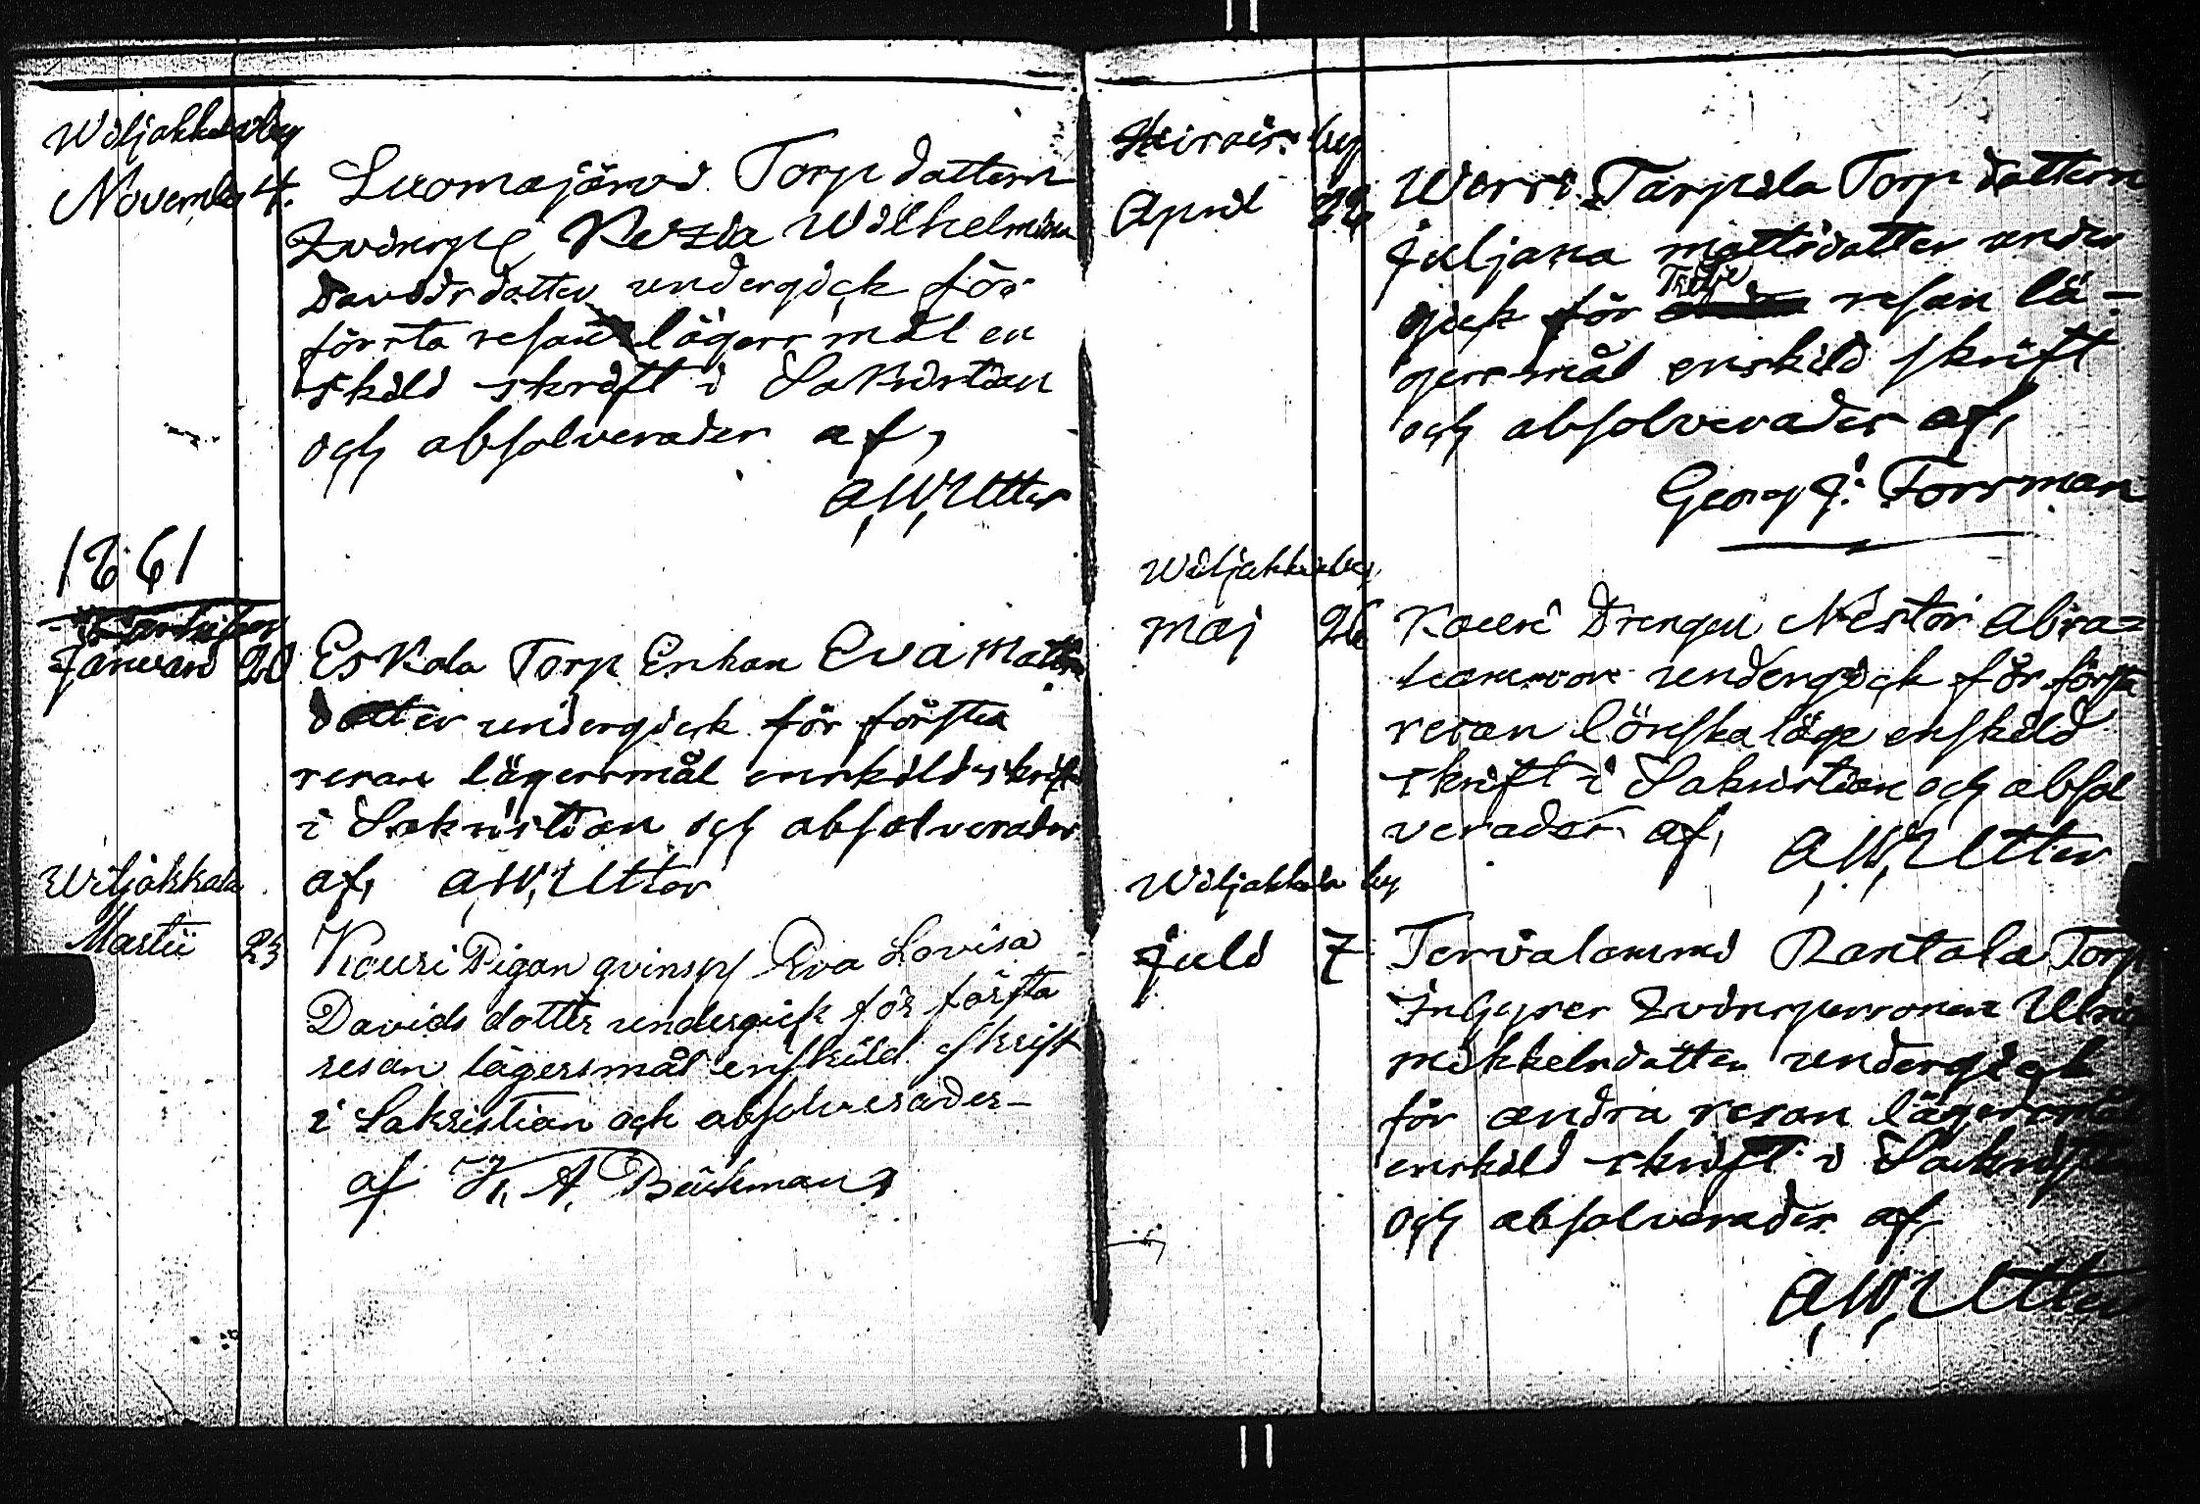 Wiljakkala by
November 4. Luomajärvi Torp dattern
Qvinsp Kezia Wilhelmina
Davidsdatter undergick för
första resan lägersmål en
skild skrift i Sakristian
och absolverades af,
A, W, Utter
1861
Januari 20 Eskola Torp Enkan Eva Matts
datter undergick för första
resan lägersmål enskild skrift
i Sakristian och absolverades
af, A, W, Utter
Wiljakkala
Martii 23 Kouri Pigan qvinsp Eva Lovisa
Davids dotter undergick för första
resan lägersmål enskild skrift
i Sakristian och absolverades
af K. A. Bäckman
by
April 22 Worri Tarpila Torp dattern
Juljana Mattsdatter under
gick för Tredje resan lä-
gersmål enskild skrift
och absolverades af,
Georg J: Forsman
Wiljakkala by
Maj 26 Kouri Drengen Nestor Abra=
hamsson undergick för första
resan lönskaläge enskild
skrift i Sakristian och absol
verades af, A, W, Utter
Wiljakkala by
Juli 7 Tervalammi Rantala Torp
Inhyses Qvinspersonen Ulrica
Mikkelsdatter undergick
för andra resan lägersmål
enskild skrift i Sakristian
och absolverades af,
A, W, Utter